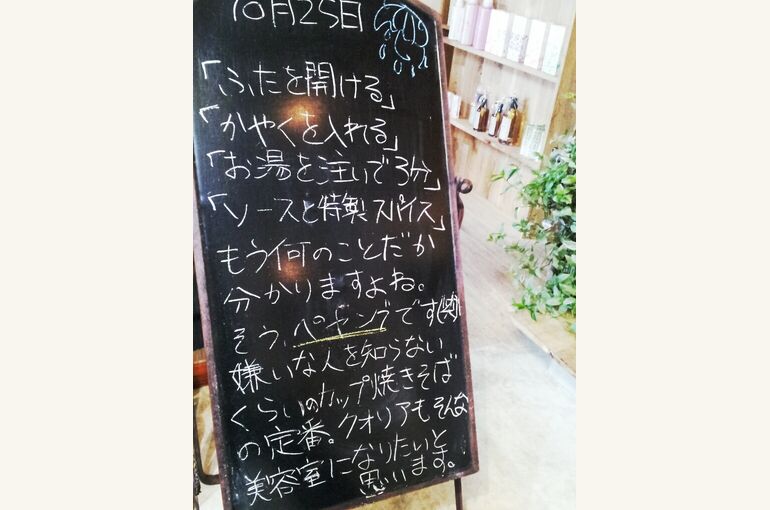 10月25日
「ふたを開ける」
「かやくを入れる」
「お湯を注いで3分」
「ソースと特製スパイス」
もう何のことだか
分かりますよね。
そう、ペヤングです(笑)
嫌いな人を知らない
くらいのカップ焼きそば
の定番。クオリアもそんな
美容室になりたいと
思います。